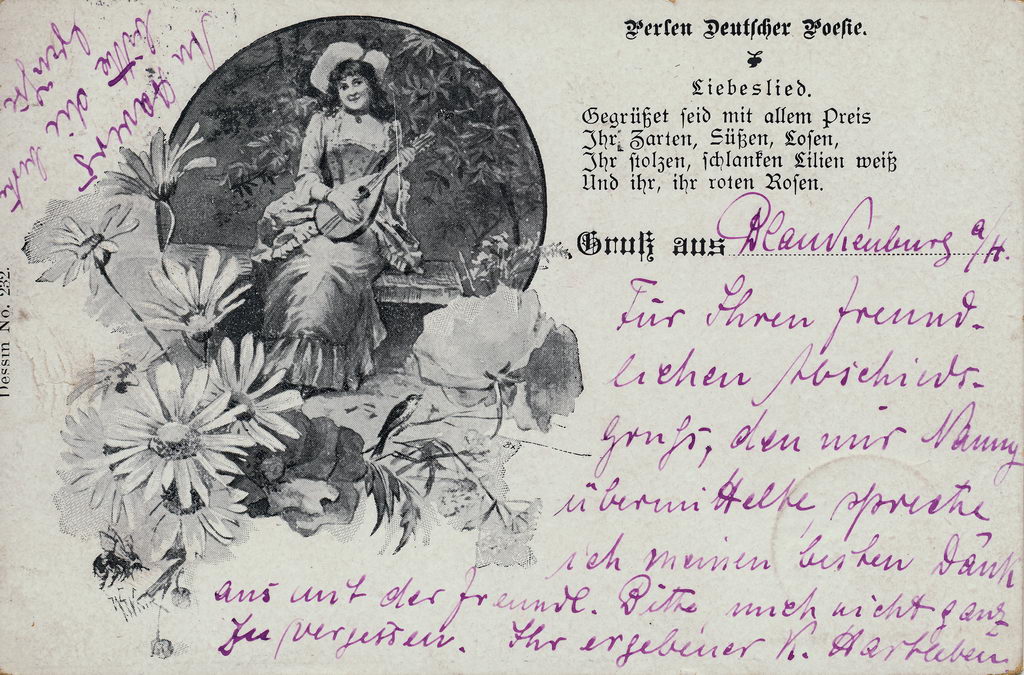 Perlen Deutscher Poesie.
Liebeslied.
Gegrüßet seid mit allem Preis
Ihr Zarten, Süßen, Losen,
Ihr stolzen, schlanken Lilien weiß
Und ihr, ihr roten Rosen.
Gruß aus Blankenburg a/H.
Für Ihren freund-
lichen Abschieds-
gruß, den mir Nanny
übermittelte, spreche
ich meinen besten Dank
aus mit der freundl. Bitte, mich nicht ganz
zu vergessen. Ihr ergebener K. Hartleben.
bitte die
Dessin No. 232.